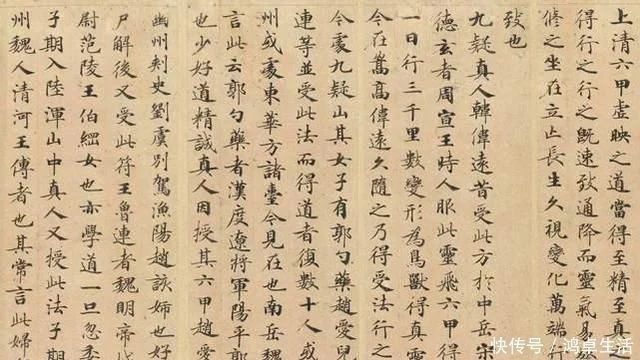 上清六甲虛映之道當得至精至真
得行之行之既速致通降而靈氣易
修之坐在立亾長生久視變化萬端
致也
九疑真人韓偉遠昔受此方於中岳宋
德玄者周宣王時人服此靈飛六甲得
一日行三千里數變形為鳥獸得真靈
今在嵩高偉遠久隨之乃得受法行之
今處九疑山其女子有郭勺藥趙愛兒
連等並受此法而得道者復數十人或
州或處東華方諸臺今見在也南岳魏
言此云郭勺藥者漢度遼將軍陽平郭
也少好道精誠真人因授其六甲趙愛
幽州刾史劉虞別駕漁陽趙該姊也好
尸解後又受此符王魯連者魏明帝城
尉范陵王伯綱女也亦學道一旦忽委
子期入陸渾山中真人又授此法子期
州魏人清河王傳者也其常言此婦
快传号 / 鸿卓生活